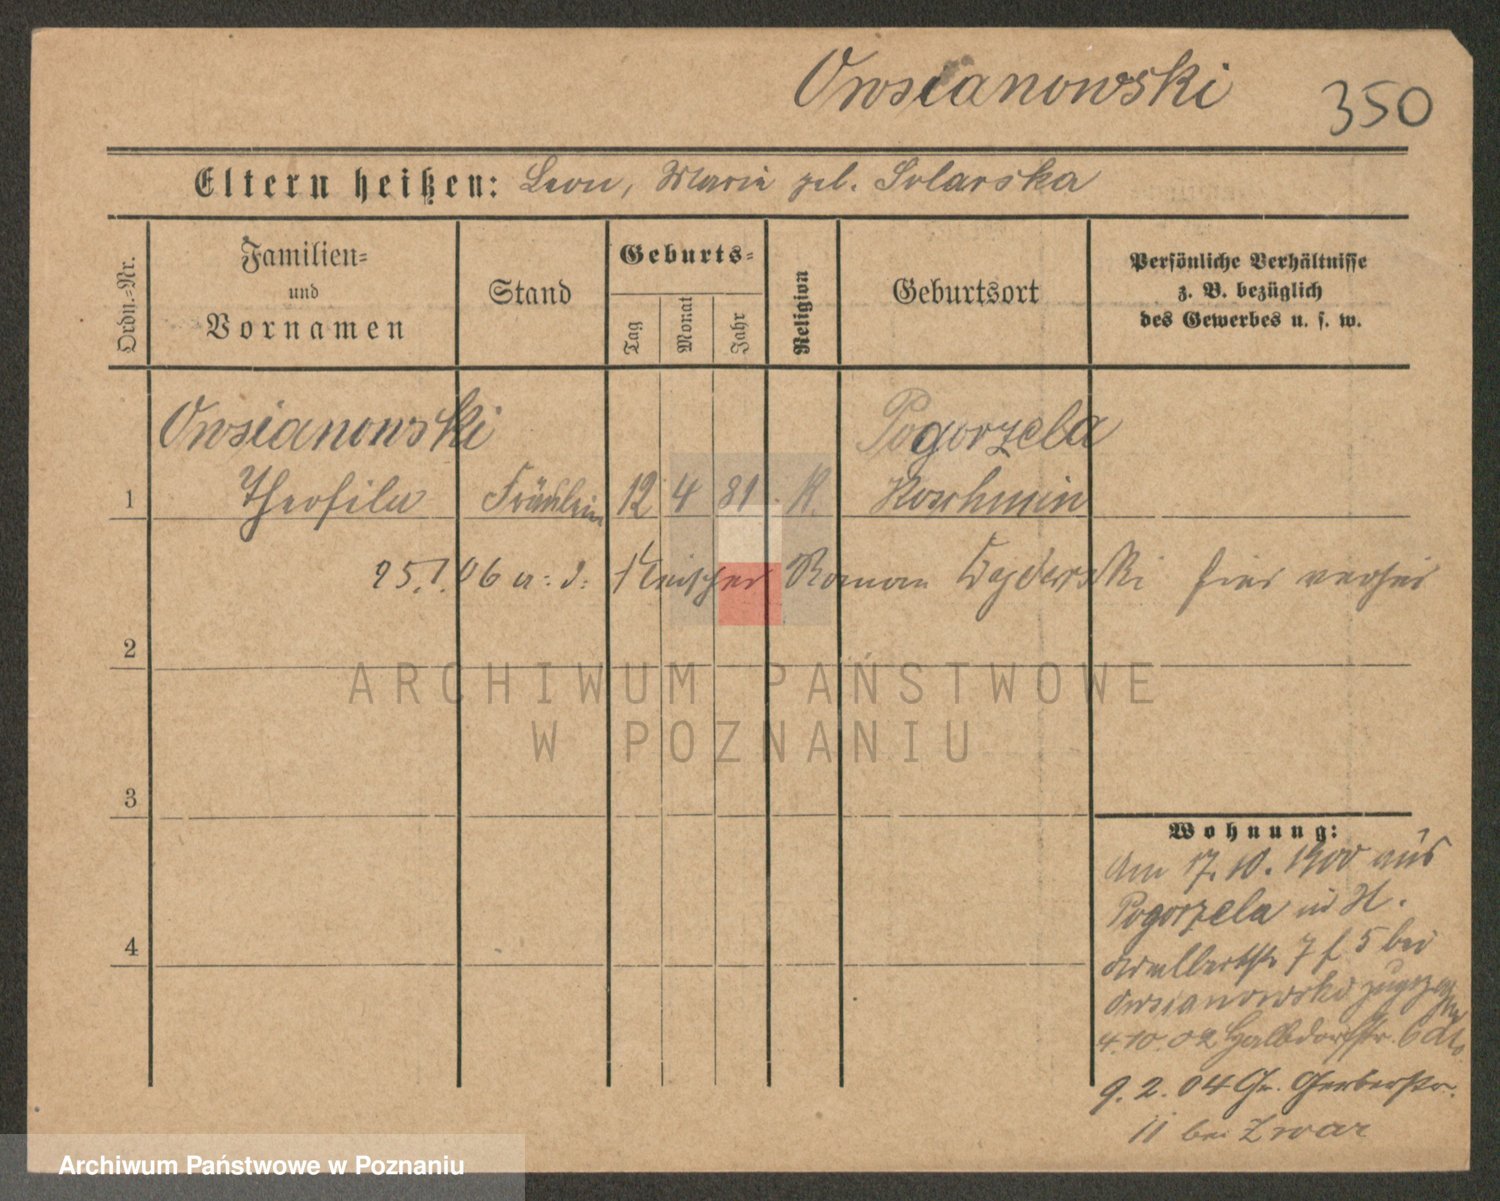 Owsianowski 350
Eltern heißen: Leon, Maria geb. Solarska
Ordn.-Nr.
Familien-
und
Vornamen
Stand
Geburts-
Tag
Monat
Jahr
Religion
Geburtsort
Persönliche Verhältnisse
z. B. bezüglich
des Gewerbes u. s. w.
Owsianowski Pogorzela
1 Theofila Fräulein 12 4 81. K. Koschmin
25.1.06 a. d. Fleischer Roman hier
2
ARCHIWUM PAŃSTWOWE
W POZNANIU
3
Wohnung:
Am 17.10.1900 aus
Pogorzela in
4
7 5 bei
Owsianowski zugezogen
4.10.02 Halbdorfstr. 6 dto
9.2.04 Gr. Gerberstr.
11 bei Zwar
Archiwum Państwowe w Poznaniu